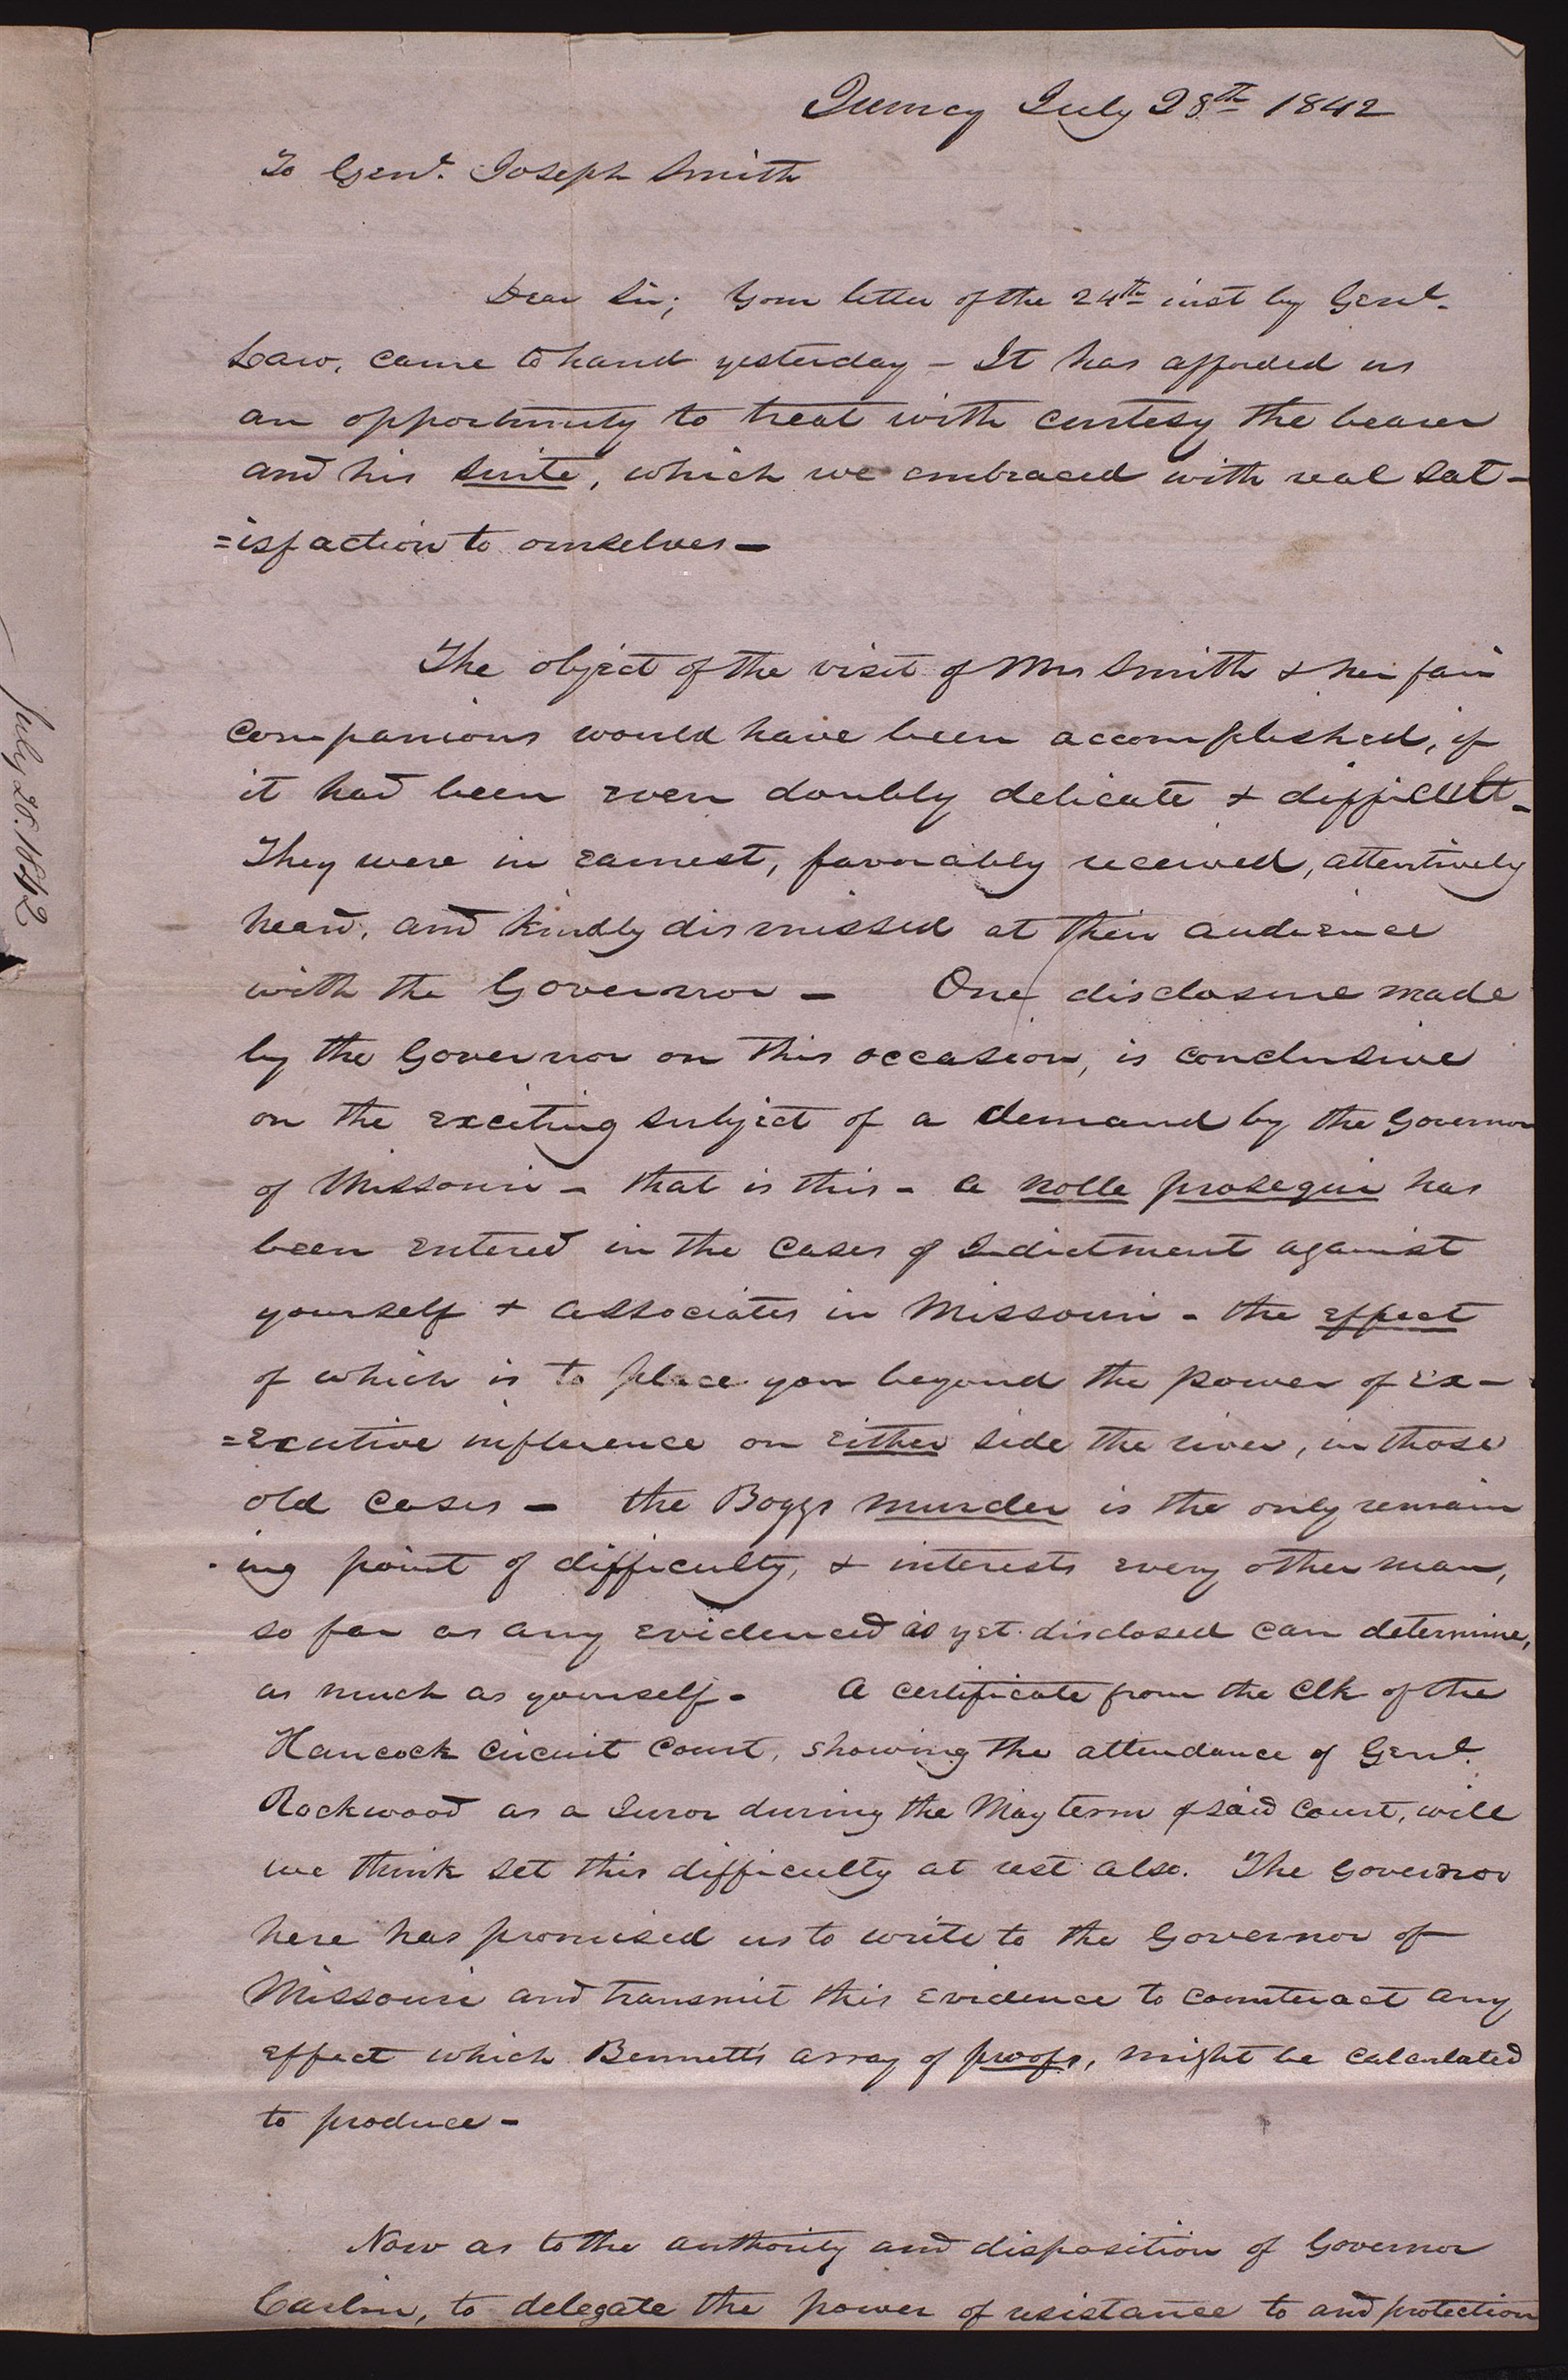 Quincy July 28th 1842
To Genl. Joseph Smith
Dear Sir; Your letter of the 24th inst by Genl.
Law, came to hand yesterday — It has afforded us
an opportunity to treat with curtesy the bearer
and his suite, which we embraced with real sat-
=isfaction to ourselves —
The object of the visit of Mrs Smith & her fair
companions would have been accomplished, if
it had been even doubly delicate & difficult -
They were in earnest, favorably received, attentively
heard, and kindly dismissed at their audience
with the Governor — One disclosure made
by the Governor on this occasion, is conclusive
on the exciting subject of a demand by the Governor
of Missouri — that is this - a nolle prosequi has
been entered in the cases of Indictment against
yourself & associates in Missouri - the effect
of which is to place you beyond the power of ex-
=ecutive influence on either side the river, in those
old cases — the Boggs murder is the only remain
-ing point of difficulty, & interests every other man,
so far as any evidence as yet disclosed can determine,
as much as yourself - A certificate from the Clk of the
Hancock Circuit Court, showing the attendance of Genl.
Rockwood as a Juror during the May term of said Court, will
we think set this difficulty at rest also. The Governor
here has promised us to write to the Governor of
Missouri and transmit this evidence to counteract any
effect which Bennett's array of proofs, might be calculated
to produce -
Now as to the authority and disposition of Governor
Carlin, to delegate the power of resistance to and protection
July 28. 1842